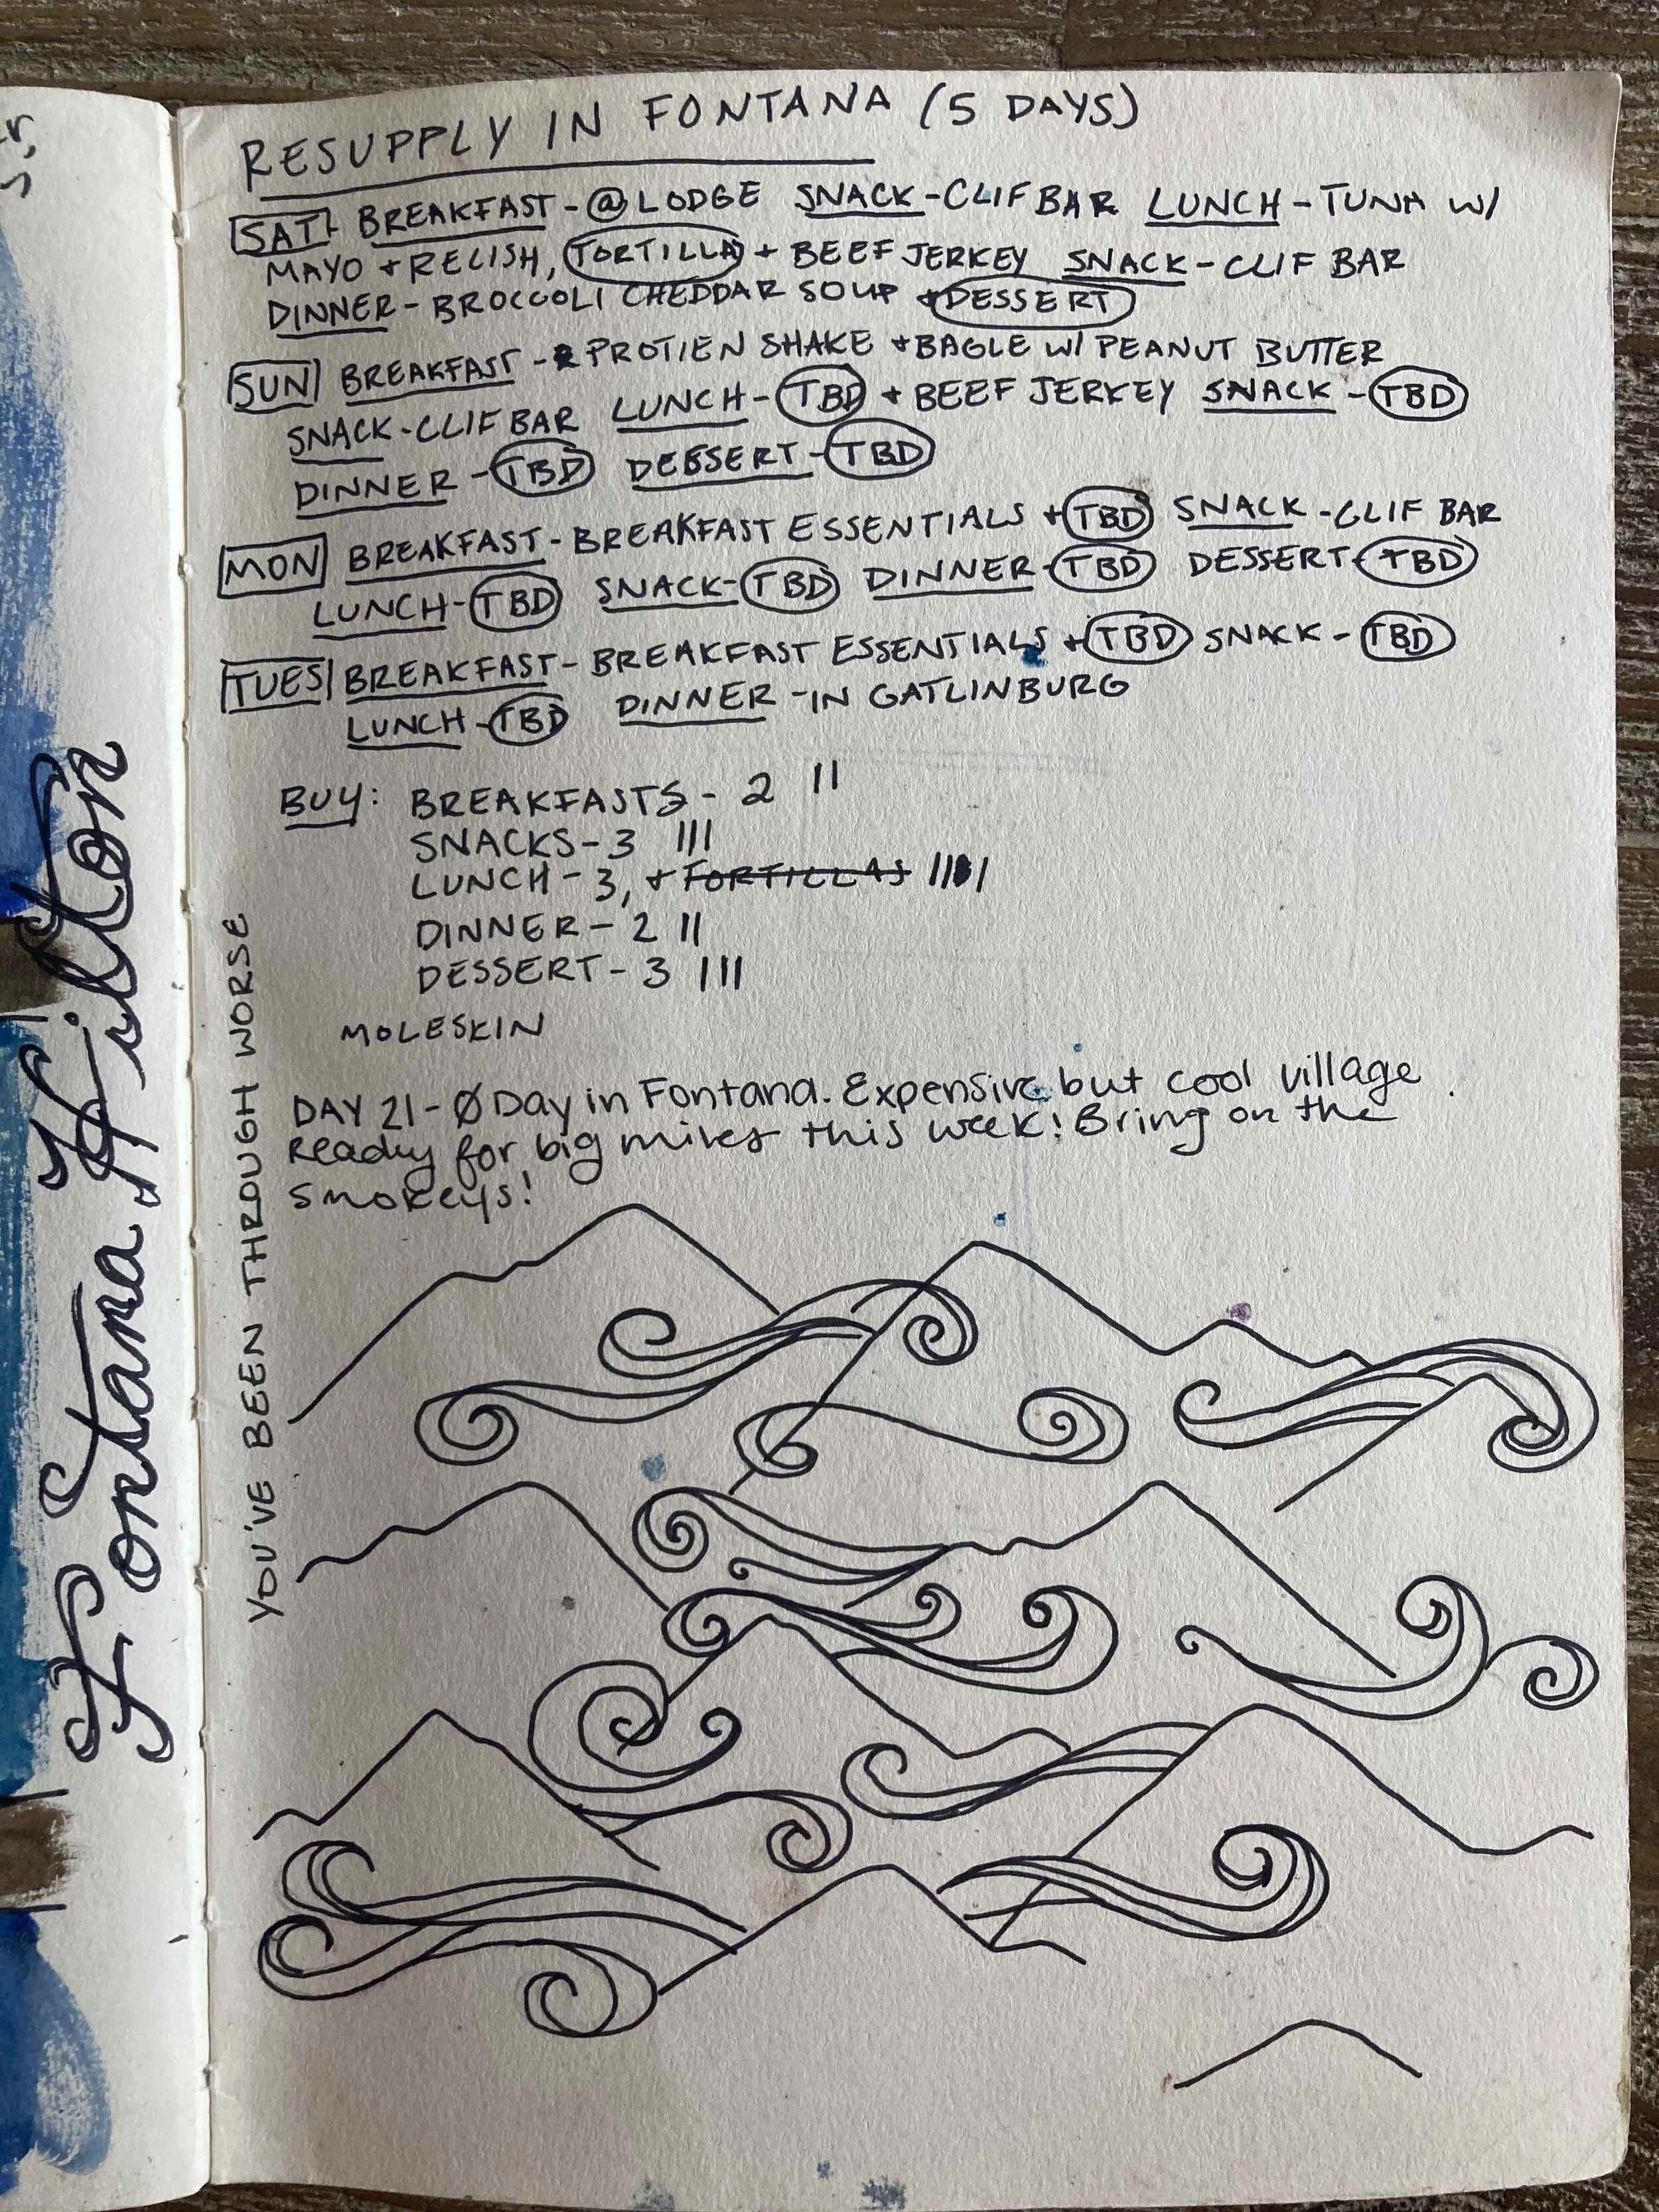 RESUPPLY IN FONTANA (5 DAYS)
SAT BREAKFAST - @ LODGE SNACK - CLIF BAR LUNCH - TUNA W/
MAYO + RELISH, TORTILLA + BEEF JERKEY SNACK - CLIF BAR
DINNER - BROCCOLI CHEDDAR SOUP + DESSERT
SUN BREAKFAST - PROTIEN SHAKE + BAGLE W/ PEANUT BUTTER
SNACK - CLIF BAR LUNCH - TBD + BEEF JERKEY SNACK - TBD
DINNER - TBD DESSERT - TBD
MON BREAKFAST - BREAKFAST ESSENTIALS + TBD SNACK - CLIF BAR
LUNCH - TBD SNACK - TBD DINNER - TBD DESSERT - TBD
TUES BREAKFAST - BREAKFAST ESSENTIALS + TBD SNACK - TBD
LUNCH - TBD DINNER - IN GATLINBURG
BUY: BREAKFASTS - 2 II
SNACKS - 3 III
LUNCH - 3, + TORTILLAS IIII
DINNER - 2 II
DESSERT - 3 III
MOLESKIN
DAY 21 - Ø Day in Fontana. Expensive but cool village.
Ready for big miles this week! Bring on the
smokeys!
YOU'VE BEEN THROUGH WORSE
Fontana Hilton